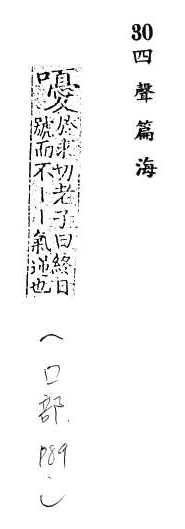 30 四聲篇海
嚘
於求切老子曰終日
號而不丨丨氣逆也
(口部. P89.)